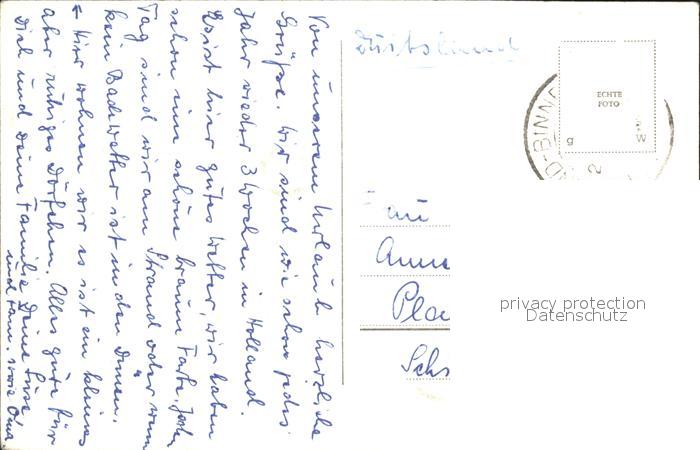 Von unserem Urlaub herzliche
Grüße. Wir sind wie schon jedes
Jahr wieder 3 Wochen in Holland.
Es ist hier gutes Wetter, wir haben
schon eine schöne braune Farbe. Jeden
Tag sind wir am Strand oder wenn
kein Badewetter ist in den Dünen.
← Hier wohnen wir es ist ein kleines
aber ruhiges Dörfchen. Alles gute für
Dich und Deine Familie Deine
und Fam. sowie Oma
Duitsland
ECHTE
FOTO
g
W
-BINN
2
au
Anne
Pla
Sch
privacy protection
Datenschutz